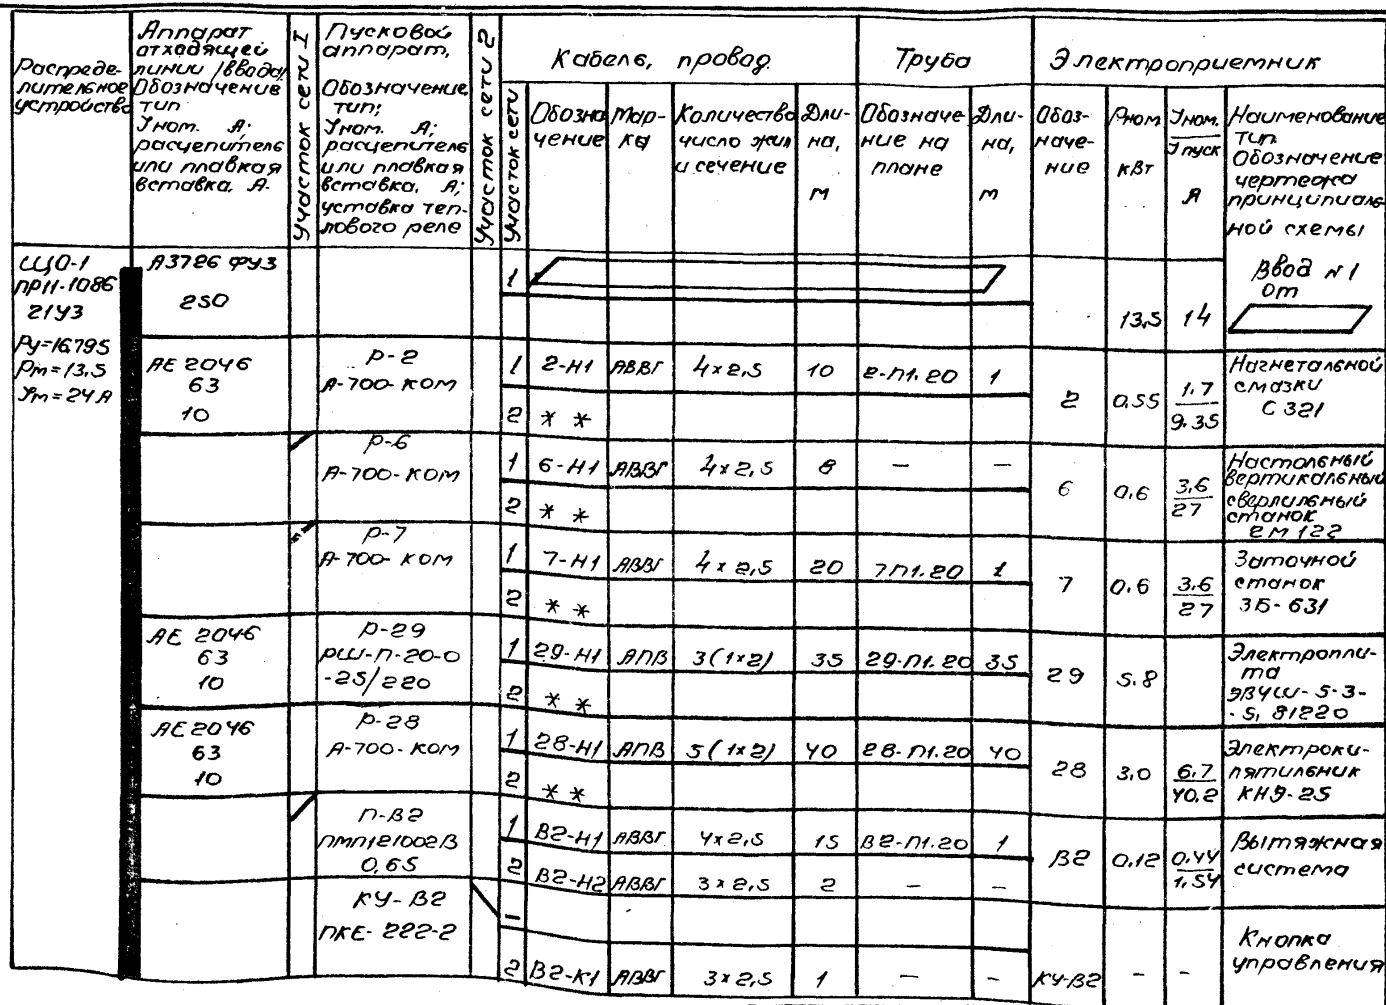 Распреде-
лительное
устройство
Аппарат
отходящей
линии /ввода/
Обозначение
тип
Iном. А;
расцепитель
или плавкая
вставка, А.
Участок сети 1
Пусковой
аппарат,
Обозначение,
тип;
Iном. А;
расцепитель
или плавкая
вставка, А;
уставка теп-
лового реле
Участок сети 2
Участок сети
Кабель, провод
Обозна-
чение
Мар-
ка
Количество
число жил
и сечение
Дли-
на,
м
Труба
Обозначе
ние на
плане
Дли-
на,
м
Электроприемник
Обоз-
наче-
ние
Рном
кВт
Iном.
Iпуск
А
Наименование
тип.
Обозначение
чертежа
принципиаль-
ной схемы
ЩО-1
ПР11-1086
21У3
Ру=16,795
Рт=13,5
Ут=24А
А3726 ФУ3
250
1
13,5
14
Ввод №1
от
АЕ 2046
63
10
Р-2
А-700-ком
1 2-Н1 АВВГ 4х2,5 10 2-П1.20 1
2 * *
2 0,55 1,7
9,35
Нагнетальной
смазки
С 321
Р-6
А-700-ком
1 6-Н1 АВВГ 4х2,5 8 – –
2 * *
6 0,6 3,6
27
Настольный
вертикальный
сверлильный
станок
2М 122
Р-7
А-700-ком
1 7-Н1 АВВГ 4х2,5 20 7П1.20 1
2 * *
7 0,6 3,6
27
Заточной
станок
3Б-631
АЕ 2046
63
10
Р-29
РШ-П-20-0
-25/220
1 29-Н1 АПВ 3(1х2) 35 29-П1.20 35
2 * *
29 5,8
Электропли-
та
ЭВЧШ-5-3-
-5, 81220
АЕ2046
63
10
Р-28
А-700-ком
1 28-Н1 АПВ 5(1х2) 40 28-П1.20 40
2 * *
28 3,0 6,7
40,2
Электроки-
пятильник
КНЭ-25
П-В2
ПМЛ121002В
0,65
1 В2-Н1 АВВГ 4х2,5 15 В2-П1.20 1
2 В2-Н2 АВВГ 3х2,5 2 – –
В2 0,12 0,44
1,54
Вытяжная
система
КУ-В2
ПКЕ-222-2
–
2 В2-К1 АВВГ 3х2,5 1 – –
КУ-В2 – –
Кнопка
управления